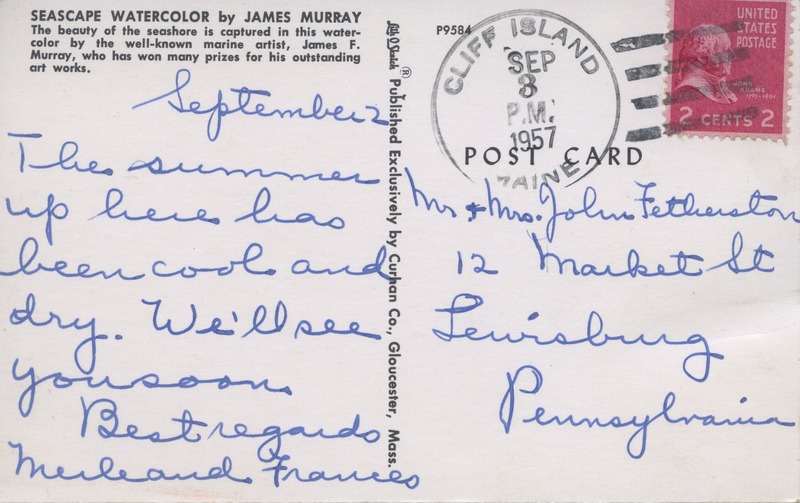 SEASCAPE WATERCOLOR by JAMES MURRAY
The beauty of the seashore is captured in this water-
color by the well-known marine artist, James F.
Murray, who has won many prizes for his outstanding
art works.
September 2
The summer
up here has
been cool and
dry. We'll see
you soon
Best regards
Merle and Frances
Published Exclusively by Curhan Co., Gloucester, Mass.
P9584
CLIFF ISLAND
SEP
3
P.M.
1957
MAINE
UNITED
STATES
POSTAGE
JOHN
ADAMS
2 CENTS 2
POST CARD
Mr. & Mrs. John Fetherston
12 Market St
Lewisburg
Pennsylvania